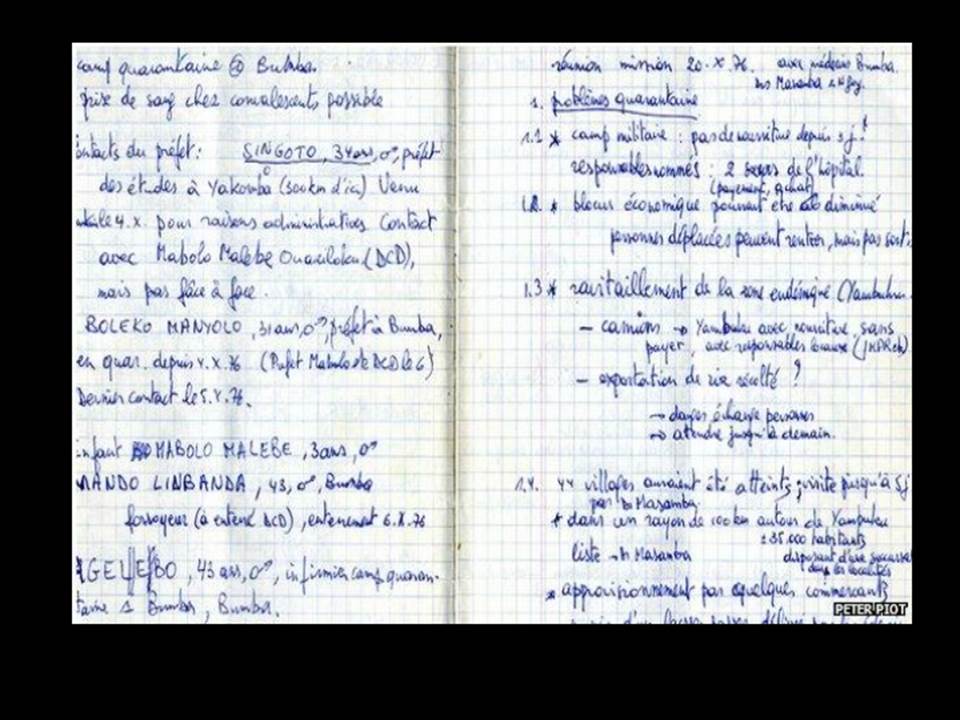 camp quarantaine @ Bumba.
prise de sang chez convalescents possible
contacts du préfet: SINGOTO, 34 ans, ♂, préfet
des études à Yakoma (300 km d'ici) Venu
le 4.X. pour raisons administratives Contact
avec Mabolo Malebe (DCD),
mais pas face à face.
BOLEKO MANYOLO, 31 ans, ♂, préfet à Bumba,
en quar. depuis 4.X.76 (Préfet Mabolo DCD le 6)
Dernier contact le 5.X.76.
enfant MABOLO MALEBE, 3 ans, ♂
LINBANDA, 43, ♂, Bumba
fossoyeur (a enterré DCD), enterrement 6.X.76
43 ans, ♂, infirmier camp quaran-
taine Bumba, Bumba.
réunion mission 20.X.76. avec médecins Bumba.
Masamba
1. problèmes quarantaine
1.1 * camp militaire : pas de nourriture depuis 3 j!
responsables nommés : 2 sœurs de l'hôpital.
(payement, achat)
1.2. * blocus économique pourrait être diminué
personnes déplacées peuvent rentrer, mais pas sortir
1.3 * ravitaillement de la zone endémique (Yambuku
- camions → Yambuku avec nourriture sans
payer, avec responsables locaux
- exportation de riz récolté ?
→ danger échange personnes
→ attendre jusqu'à demain.
1.4. 44 villages auraient été atteints; visite jusqu'à 5j
par Masamba
* dans un rayon de 100 km autour de Yambuku
± 35.000 habitants
liste → Masamba disposant d'une
dans les localités
* approvisionnement par quelques commerçants
PETER PIOT